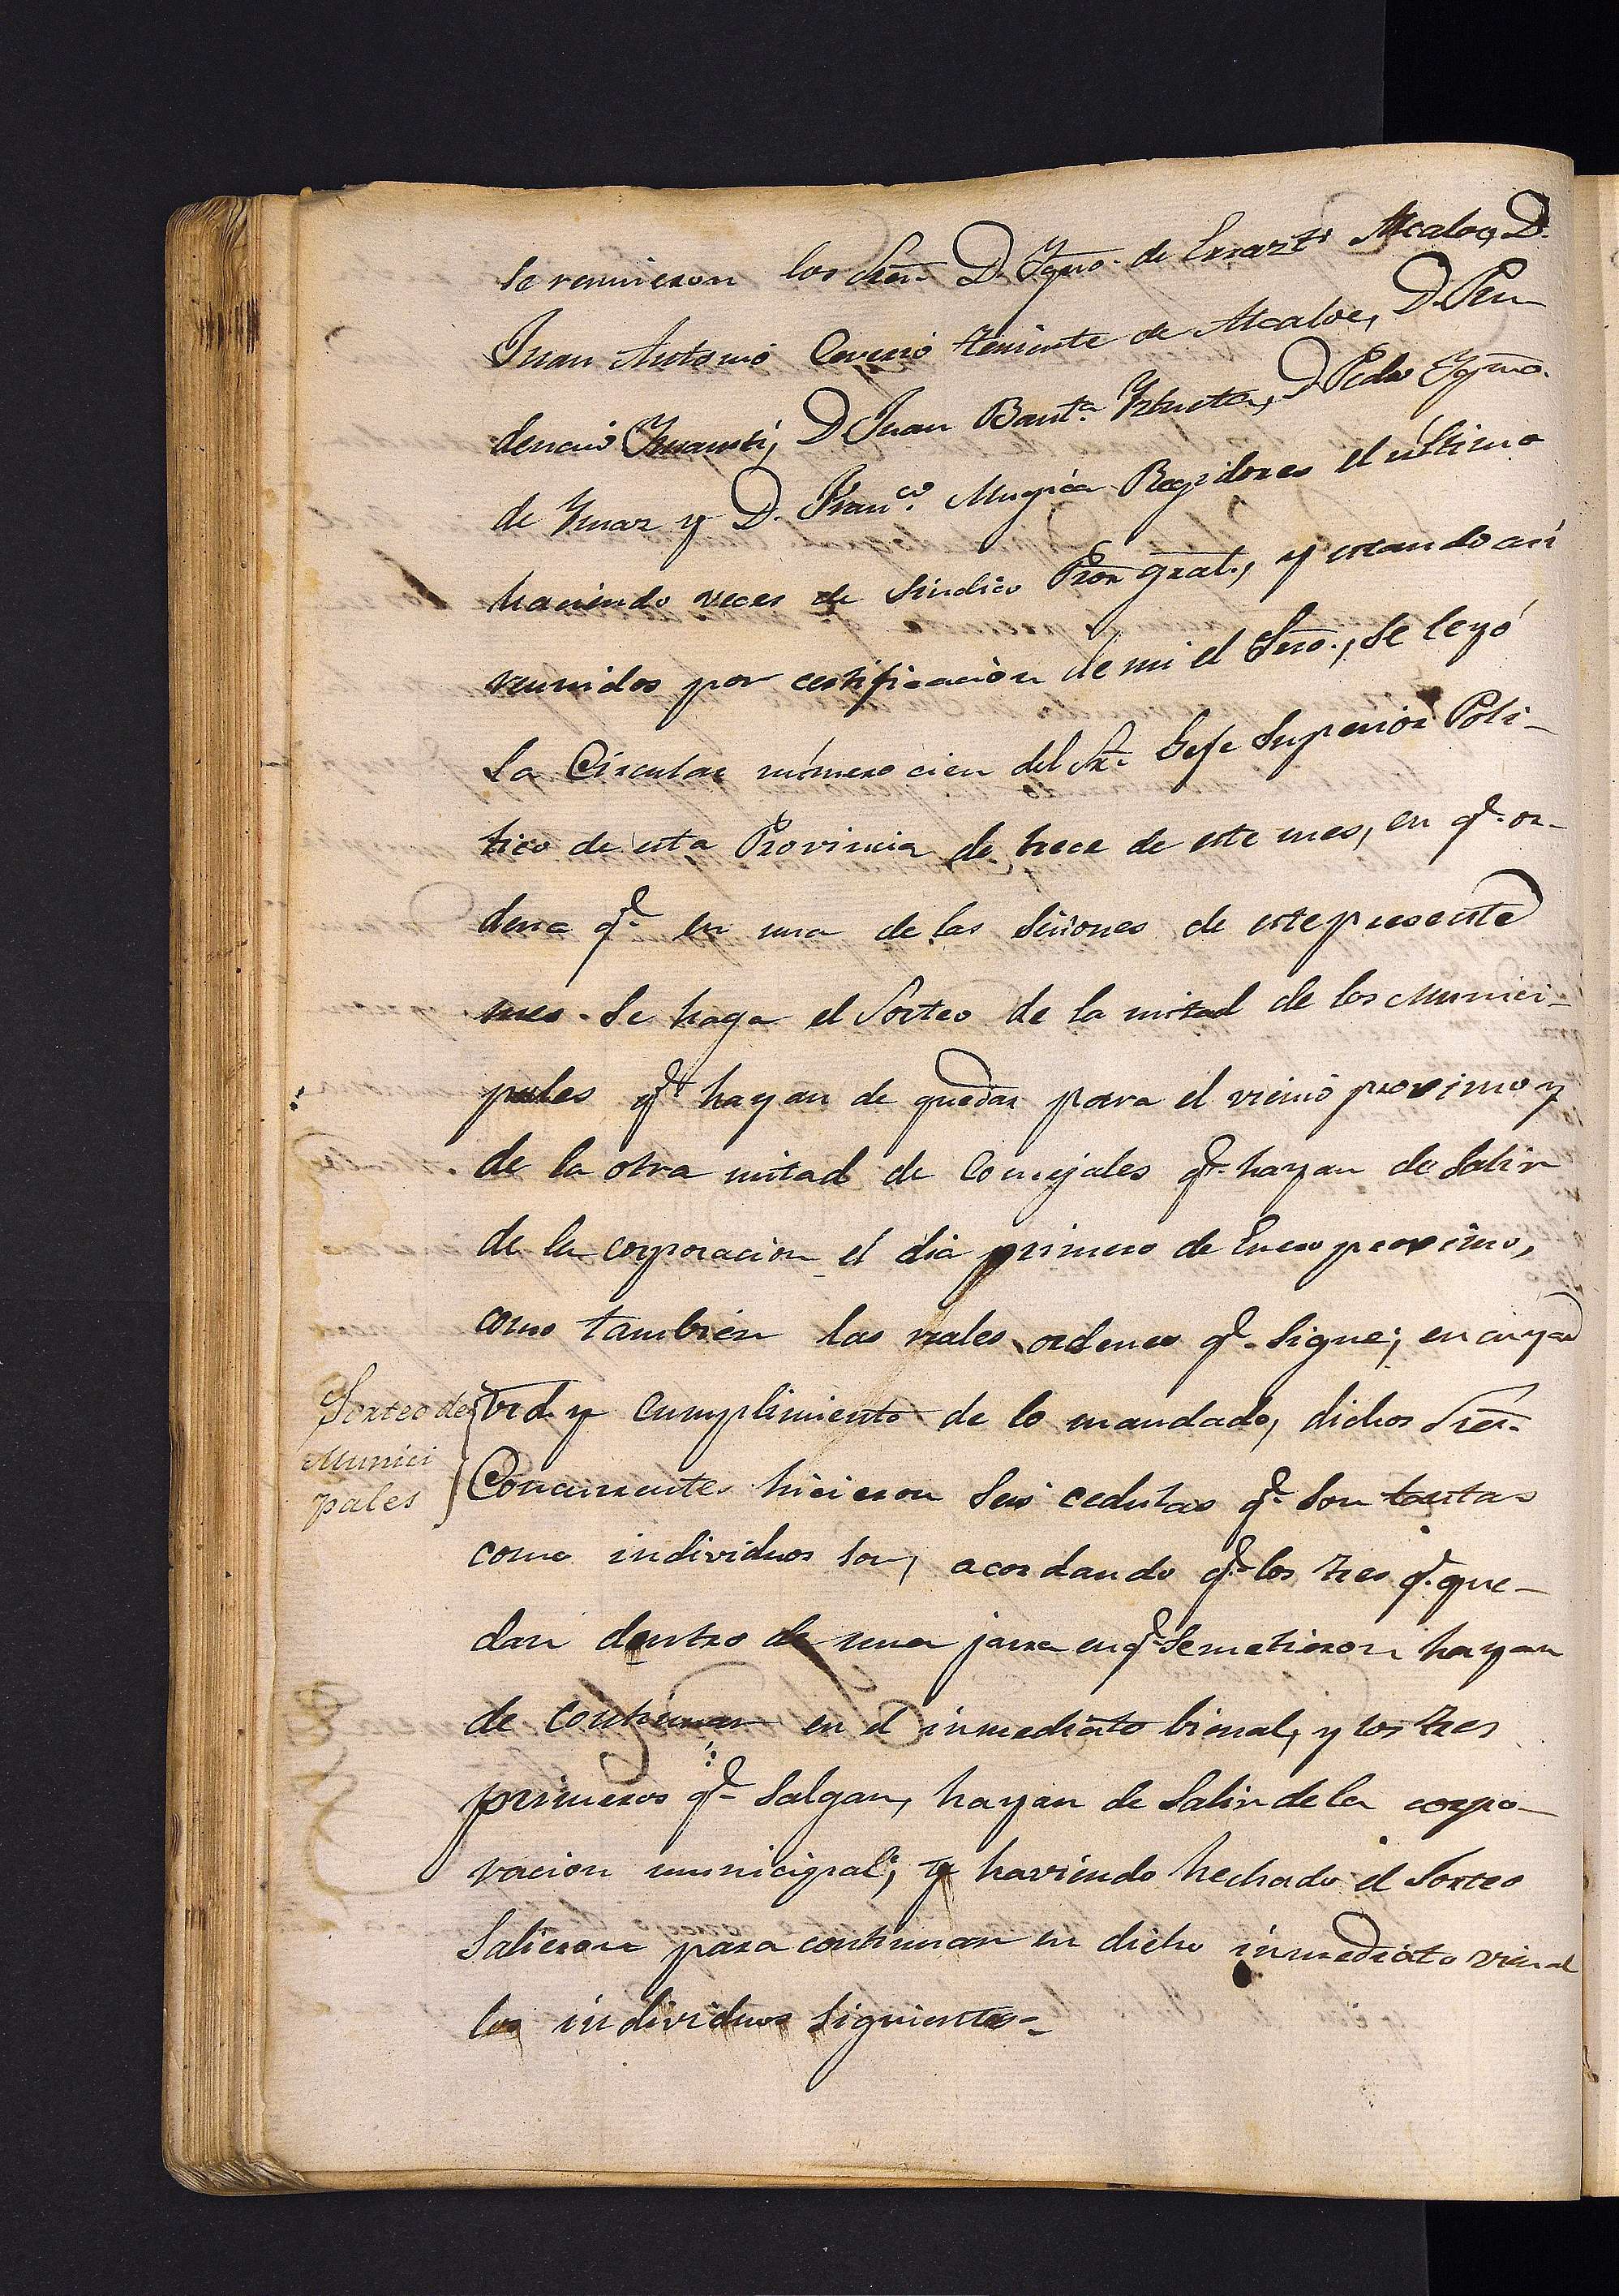 se reunieron los Sres. D. Ygno. de Errazti Alcalde, D.
Juan Antonio teniente de Alcalde, D. Pru
dencio D. Juan Baut.ª Yztueta, D. Pedro Ygno.
de y D. Fran.co Mugica Regidores el último
haciendo veces de Sindico Pror. gral., y estando asi
reunidos por certificacion de mi el Srio., se leyó
la Circular número cien del Sr. Gefe Superior Poli-
tico de esta Provincia de trece de este mes, en q.e or-
dena q.e en una de las sesiones de este presente
mes se haga el Sorteo de la mitad de los Munici-
pales q.e hayan de quedar para el vienio proximo y
de la otra mitad de Concejales q.e hayan de Salir
de la corporacion el dia primero de Enero proximo,
como tambien las reales ordenes q.e sigue; en cuya
Sorteo de
Munici
pales
vrd. y cumplimiento de lo mandado, dichos Sres.
Concurrentes hicieron seis cedulas q.e son tantas
como individuos son, acordando q.e los tres q.e que-
dan dentro de una jarra en q.e se metieron hayan
de continuar en el inmediato bienal, y los tres
primeros q.e Salgan, hayan de Salir de la corpo-
racion municipal; y haviendo hechado el Sorteo
Salieron para continuar en dicho inmediato vienal
los individuos siguientes=